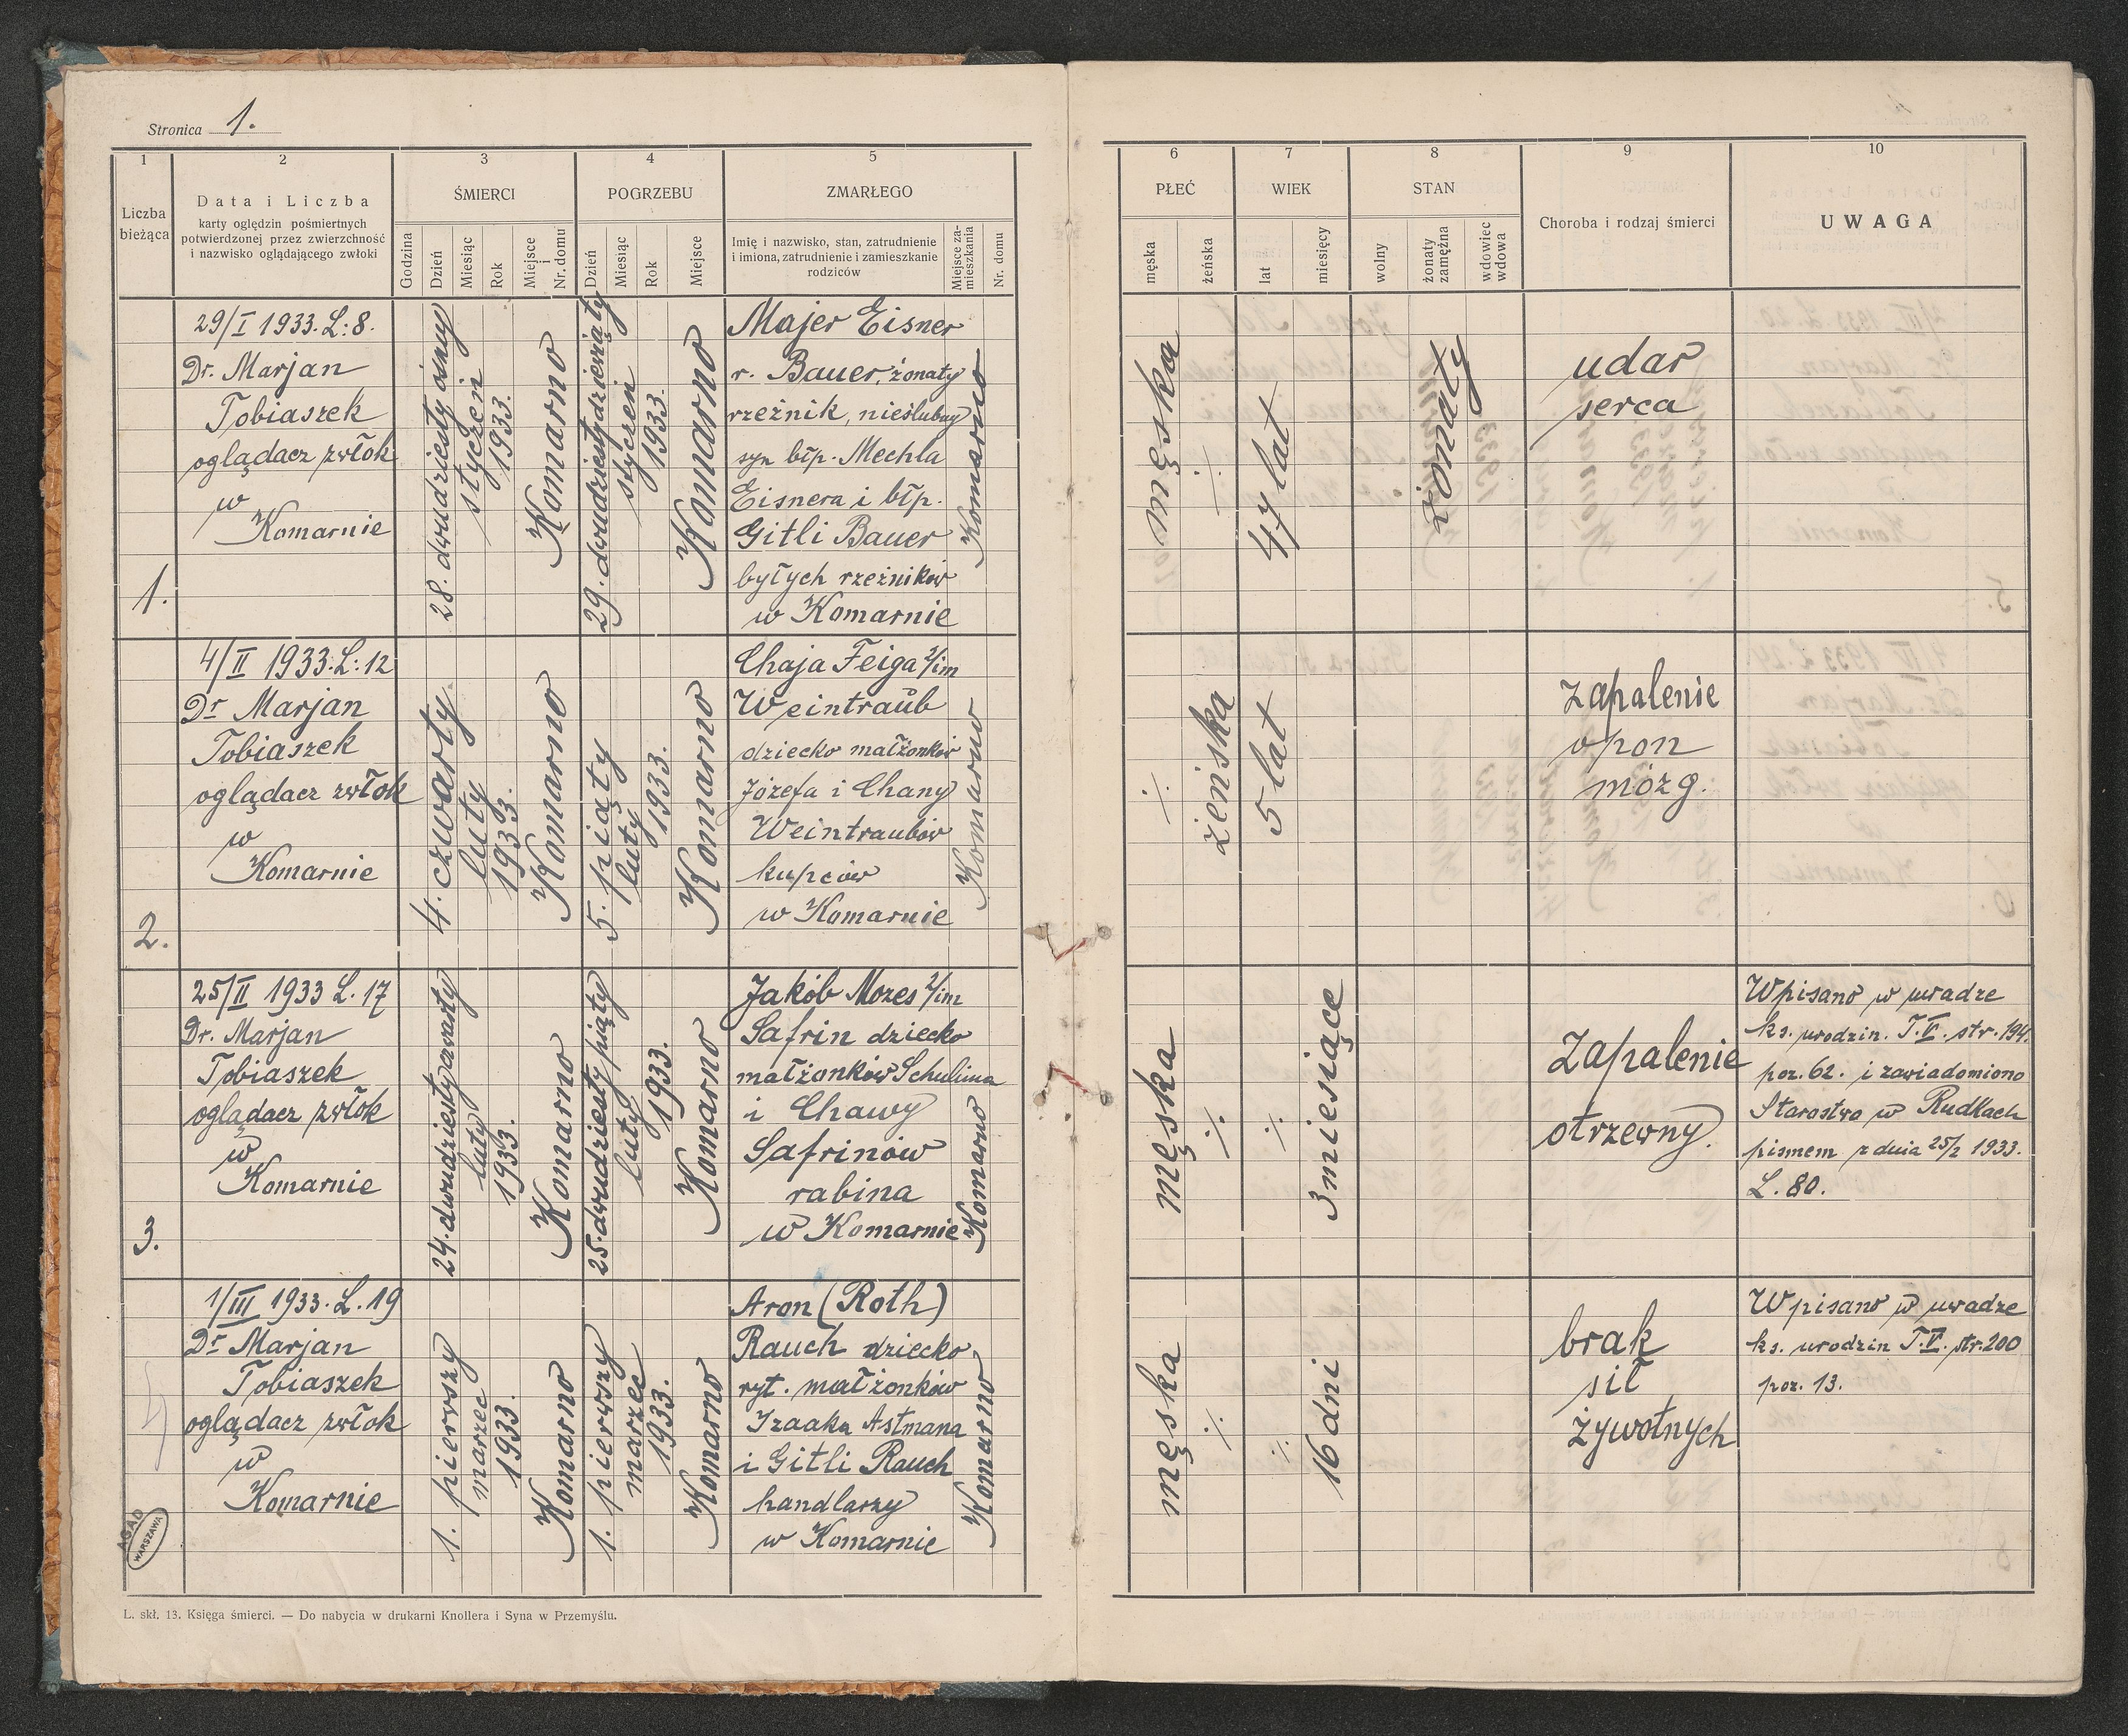 Stronica 1.
1
2
3
4
5
Liczba bieżąca
Data i Liczba
karty oględzin pośmiertnych
potwierdzonej przez zwierzchność
i nazwisko oglądającego zwłoki
ŚMIERCI
Godzina
Dzień
Miesiąc
Rok
Miejsce i Nr. domu
POGRZEBU
Dzień
Miesiąc
Rok
Miejsce
ZMARŁEGO
Imię i nazwisko, stan, zatrudnienie
i imiona, zatrudnienie i zamieszkanie
rodziców
Miejsce zamieszkania
Nr. domu
1.
29/I 1933. L: 8.
Dr. Marjan
Tobiaszek
oglądacz zwłok
w
Komarnie
28. dwudziesty ósmy
styczeń
1933.
Komarno
29. dwudziesty dziewiąty
styczeń
1933.
Komarno
Majer Eisner
r. Bauer, żonaty
rzeźnik, nieślubny
syn błp. Mechla
Eisnera i błp.
Gitli Bauer
byłych rzeźników
w Komarnie
Komarno
2.
4/II 1933. L: 12
Dr Marjan
Tobiaszek
oglądacz zwłok
w
Komarnie
4. czwarty
luty
1933.
Komarno
5. piąty
luty
1933.
Komarno
Chaja Feiga 2/im
Weintraub
dziecko małżonków
Józefa i Chany
Weintraubów
kupców
w Komarnie
Komarno
3.
25/II 1933 L. 17
Dr. Marjan
Tobiaszek
oglądacz zwłok
w
Komarnie
24. dwudziesty czwarty
luty
1933.
Komarno
25. dwudziesty piąty
luty
1933.
Komarno
Jakób Mozes 2/im
Safrin dziecko
małżonków Schulima
i Chawy
Safrinów
rabina
w Komarnie
Komarno
1/III 1933. L. 19
Dr Marjan
Tobiaszek
oglądacz zwłok
w
Komarnie
1. pierwszy
marzec
1933.
Komarno
1. pierwszy
marzec
1933.
Komarno
Aron (Roth)
Rauch dziecko
ryt. małżonków
Izaaka Astmana
i Gitli Rauch
handlarzy
w Komarnie
Komarno
AGAD
WARSZAWA
L. skł. 13. Księga śmierci. — Do nabycia w drukarni Knollera i Syna w Przemyślu.
6
7
8
9
10
PŁEĆ
męska
żeńska
WIEK
lat
miesięcy
STAN
wolny
żonaty zamężna
wdowiec wdowa
Choroba i rodzaj śmierci
UWAGA
męska
·/·
47 lat
żonaty
udar
serca
·/·
żeńska
5 lat
Zapalenie
opon
mózg.
męska
·/·
·/·
3 miesiące
Zapalenie
otrzewny.
Wpisano w uwadze
ks. urodzin. T. V. str. 194.
poz. 62. i zawiadomiono
Starostwo w Rudkach
pismem z dnia 25/2 1933.
L. 80.
męska
·/·
·/·
16 dni
brak
sił
żywotnych
Wpisano w uwadze
ks. urodzin T. V. str. 200
poz. 13.